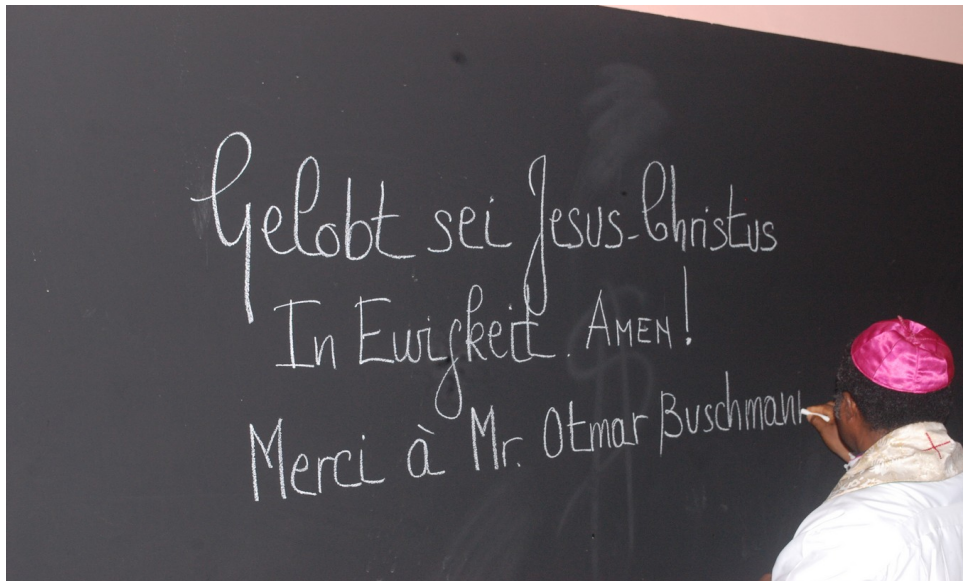 Gelobt sei Jesus-Christus
In Ewigkeit. AMEN!
Merci à Mr. Otmar Buschmann